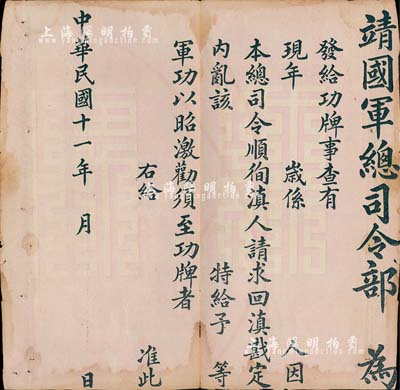 靖國軍總司令部 為
發給功牌事查有
現年 歲係 人因
本總司令順徇滇人請求回滇戡定
內亂該 特給予 等
軍功以昭激勸須至功牌者
右給 准此
中華民國十一年 月 日
上海陽明拍賣